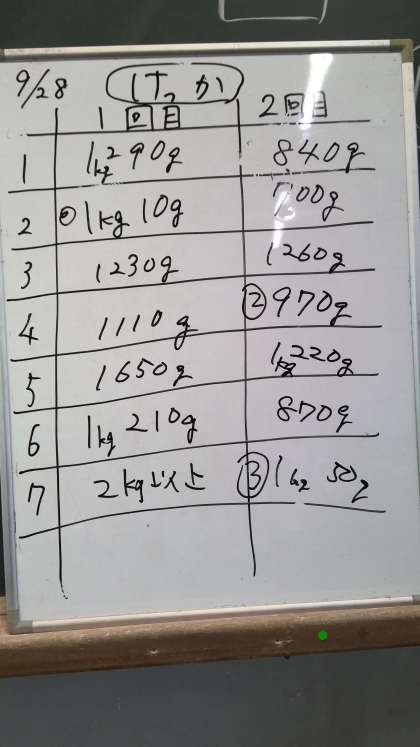 9/28 けっか
1回目 2回目
1 1kg290g 840g
2 ①1kg 10g 700g
3 1230g 1260g
4 1110g ②970g
5 1650g 1kg220g
6 1kg 210g 870g
7 2kg以上 ③1kg 50g